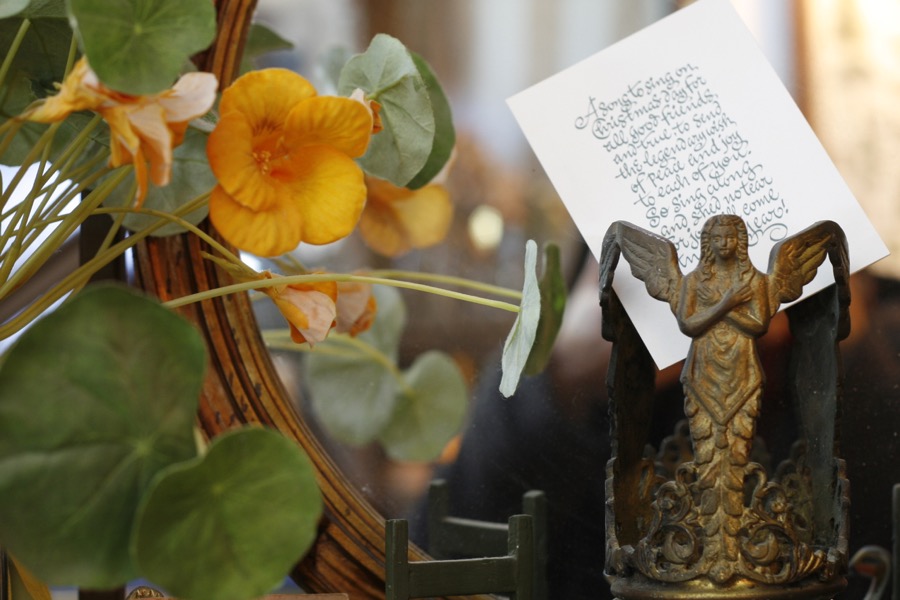 A song to sing on
Christmas day for
all good friends
and true to send
the legend wish
of peace and joy
to each of you
So sing along
and skip not
come
year!